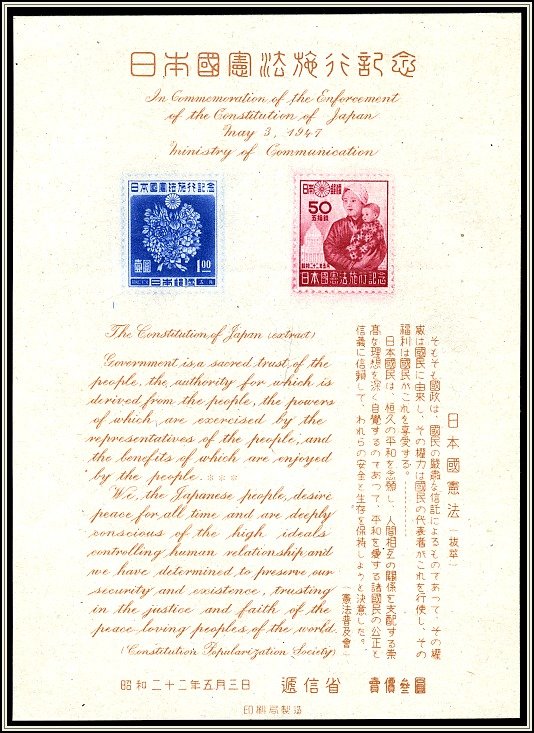 日本國憲法施行記念
In Commemoration of the Enforcement
of the Constitution of Japan
May 3, 1947
Ministry of Communication
日本國憲法施行記念
壹圓
1.00
日本郵便
日本郵便
50
五拾錢
昭和二十二年五月
日本國憲法施行記念
The Constitution of Japan (extract)
Government is a sacred trust of the
people, the authority for which is
derived from the people, the powers
of which are exercised by the
representatives of the people, and
the benefits of which are enjoyed
by the people. ...
We, the Japanese people, desire
peace for all time and are deeply
conscious of the high ideals
controlling human relationship and
we have determined to preserve our
security and existence, trusting
in the justice and faith of the
peace loving peoples of the world.
(Constitution Popularization Society)
日本國憲法(一抜萃)
そもそも國政は、國民の嚴肅な信託によるものであつて、その權
威は國民に由來し、その權力は國民の代表者がこれを行使し、その
福利は國民がこれを享受する。
日本國民は、恒久の平和を念願し、人間相互の關係を支配する崇
高な理想を深く自覺するのであつて、平和を愛する諸國民の公正と
信義に信頼して、われらの安全と生存を保持しようと決意した。
(憲法普及會)
昭和二十二年五月三日 遞信省 賣價參圓
印刷局製造